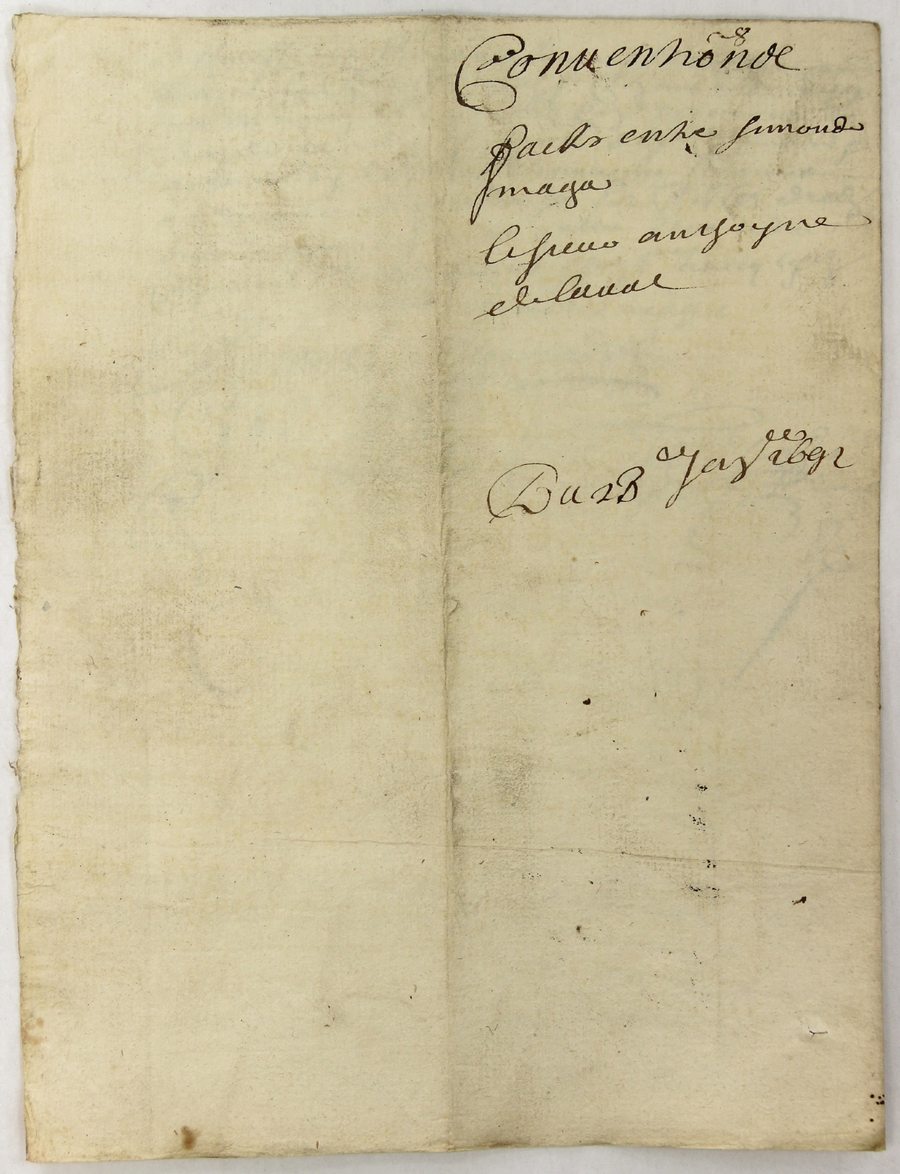 Conuention de
pacte entre simonde
maga
le sieur anthoyne
de laual
Du 28 1692